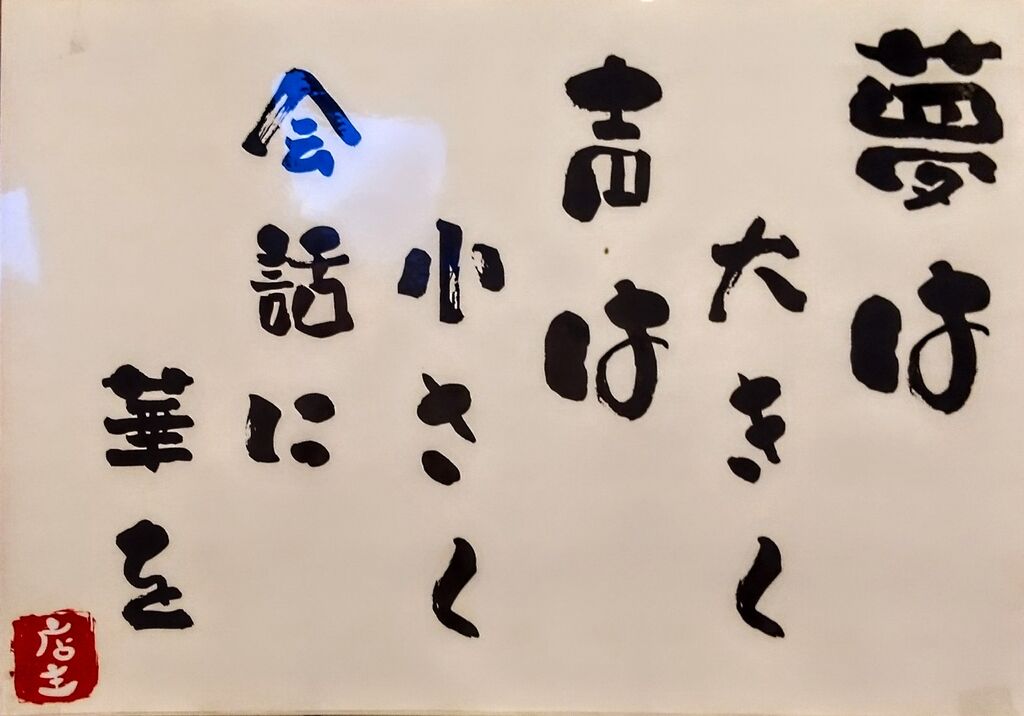 夢は
大きく
声は
小さく
会話に
華を
店主